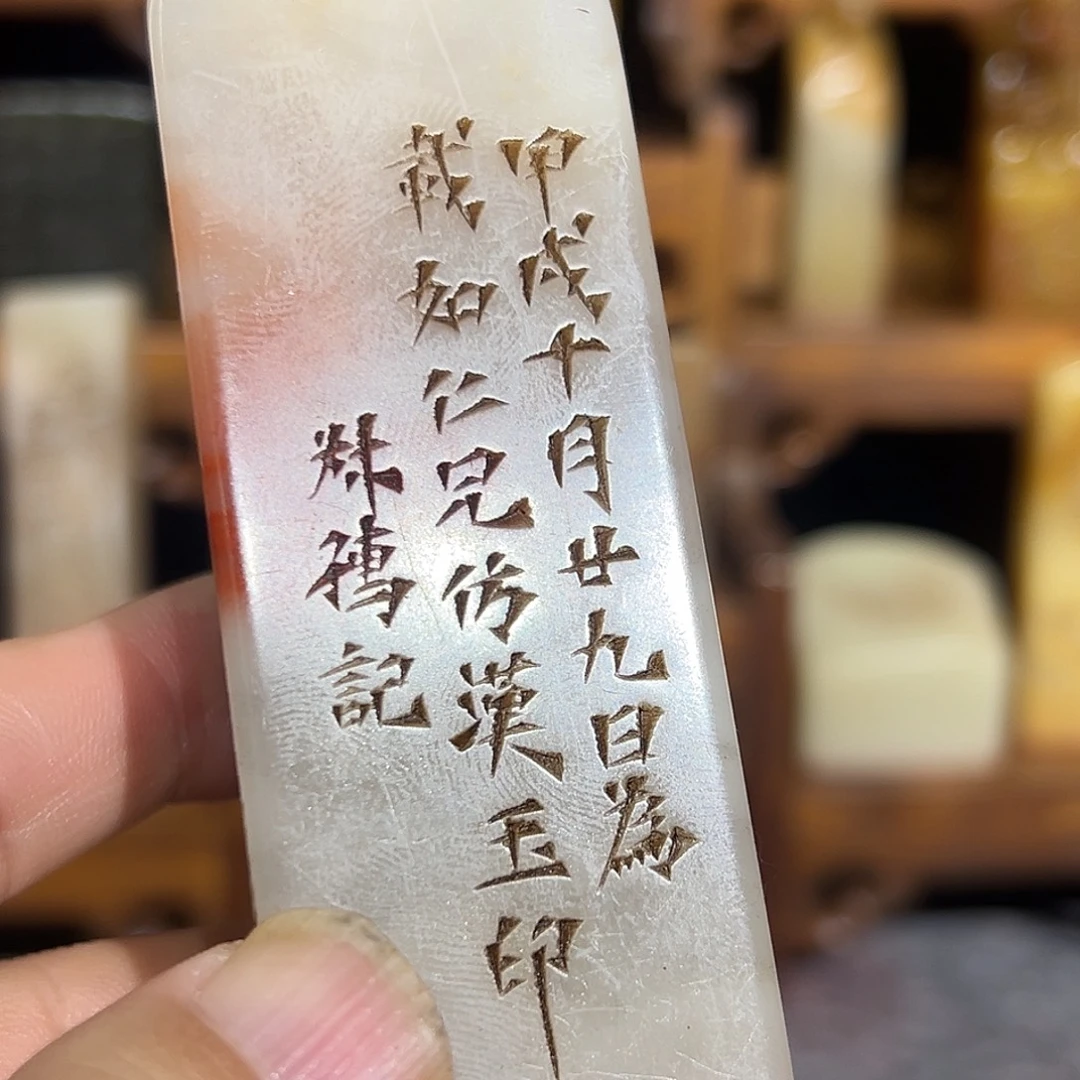 甲戌十月廿九日為
栽如仁兄仿漢玉印
記